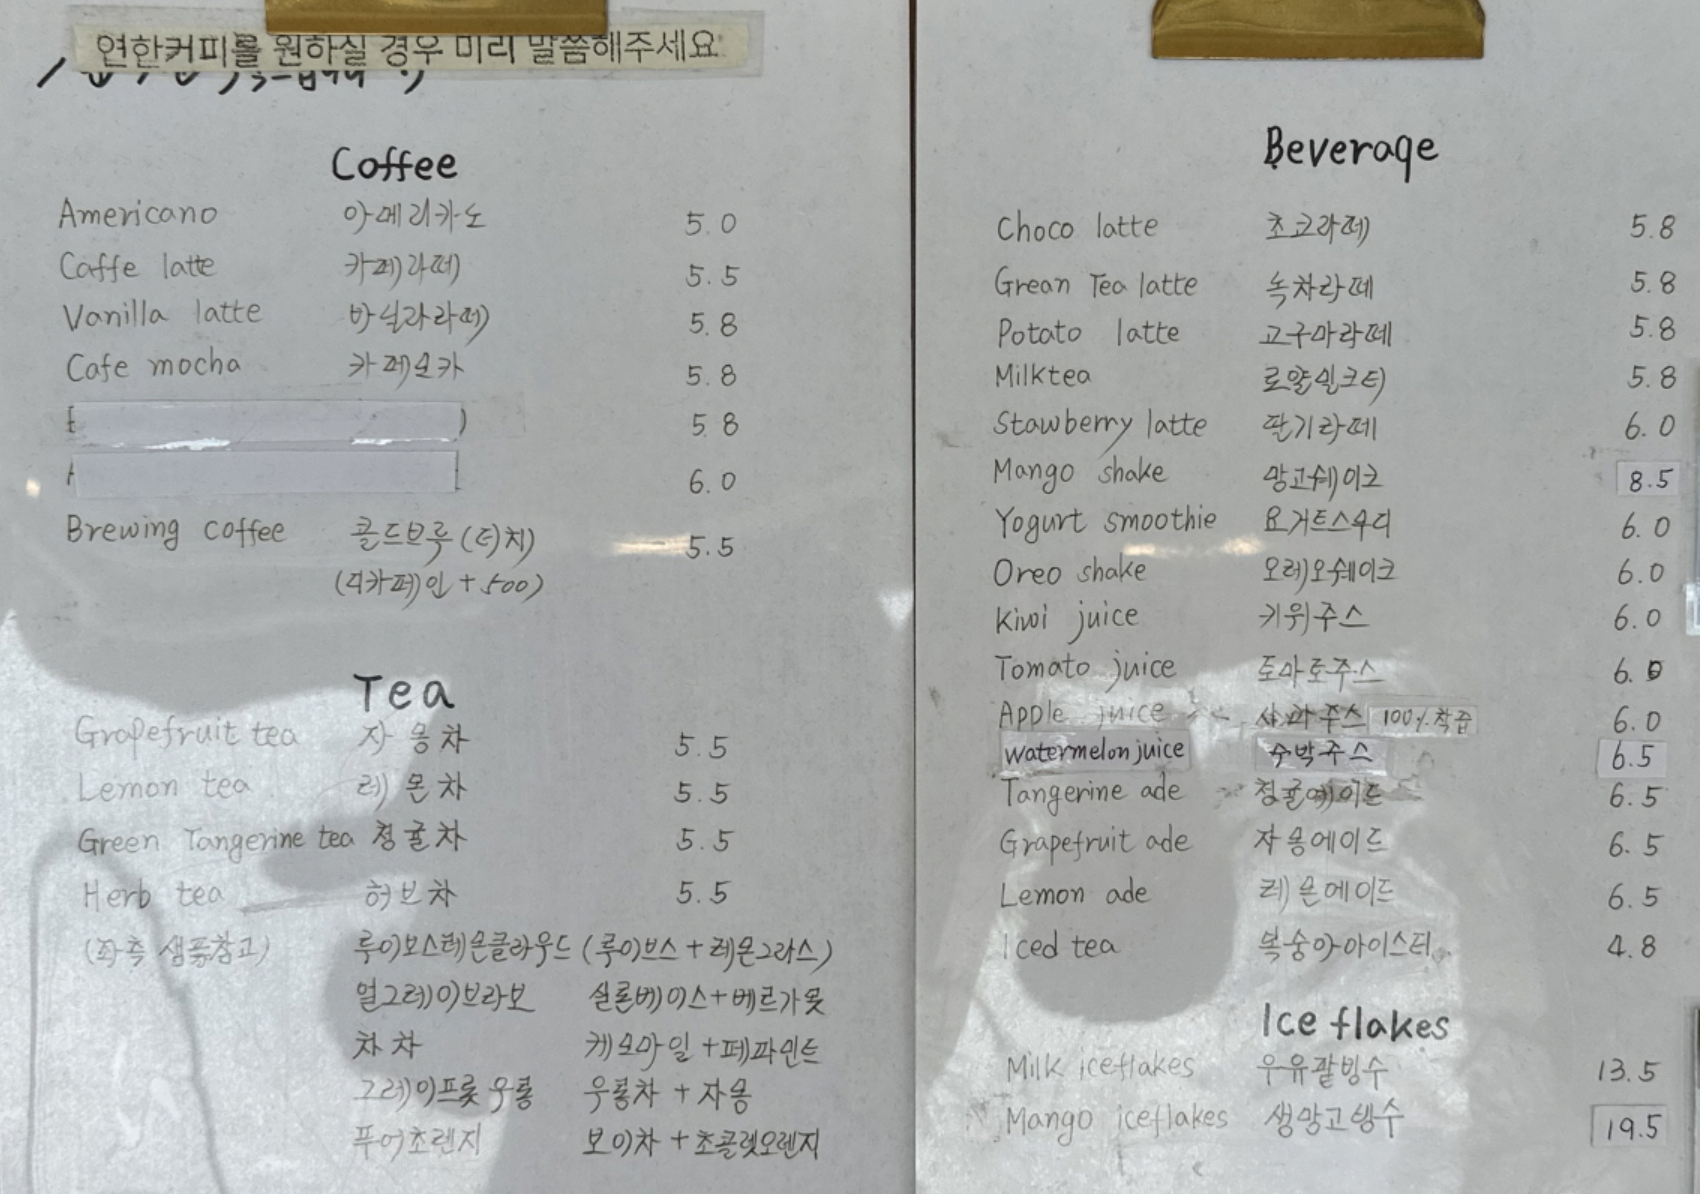 연한커피를 원하실 경우 미리 말씀해주세요
Coffee
Americano 아메리카노 5.0
Caffe latte 카페라떼 5.5
Vanilla latte 바닐라라떼 5.8
Cafe mocha 카페모카 5.8
5.8
6.0
Brewing coffee 콜드브루 (더치) 5.5
(디카페인 + 500)
Tea
Grapefruit tea 자몽차 5.5
Lemon tea 레몬차 5.5
Green Tangerine tea 청귤차 5.5
Herb tea 허브차 5.5
(좌측 샘플참고) 루이보스레몬클라우드 (루이보스 + 레몬그라스)
얼그레이브라보 실론베이스+베르가못
차차 케모마일 + 페파민트
그레이프룻 우롱 우롱차 + 자몽
푸어초렌지 보이차 + 초콜렛오렌지
Beverage
Choco latte 초코라떼 5.8
Grean Tea latte 녹차라떼 5.8
Potato latte 고구마라떼 5.8
Milktea 로얄밀크티 5.8
Stawberry latte 딸기라떼 6.0
Mango shake 망고쉐이크 8.5
Yogurt smoothie 요거트스무디 6.0
Oreo shake 오레오쉐이크 6.0
Kiwi juice 키위주스 6.0
Tomato juice 토마토주스 6.0
Apple juice 사과주스 100% 착즙 6.0
watermelon juice 수박주스 6.5
Tangerine ade 청귤에이드 6.5
Grapefruit ade 자몽에이드 6.5
Lemon ade 레몬에이드 6.5
Iced tea 복숭아아이스티 4.8
Ice flakes
Milk iceflakes 우유팥빙수 13.5
Mango iceflakes 생망고빙수 19.5